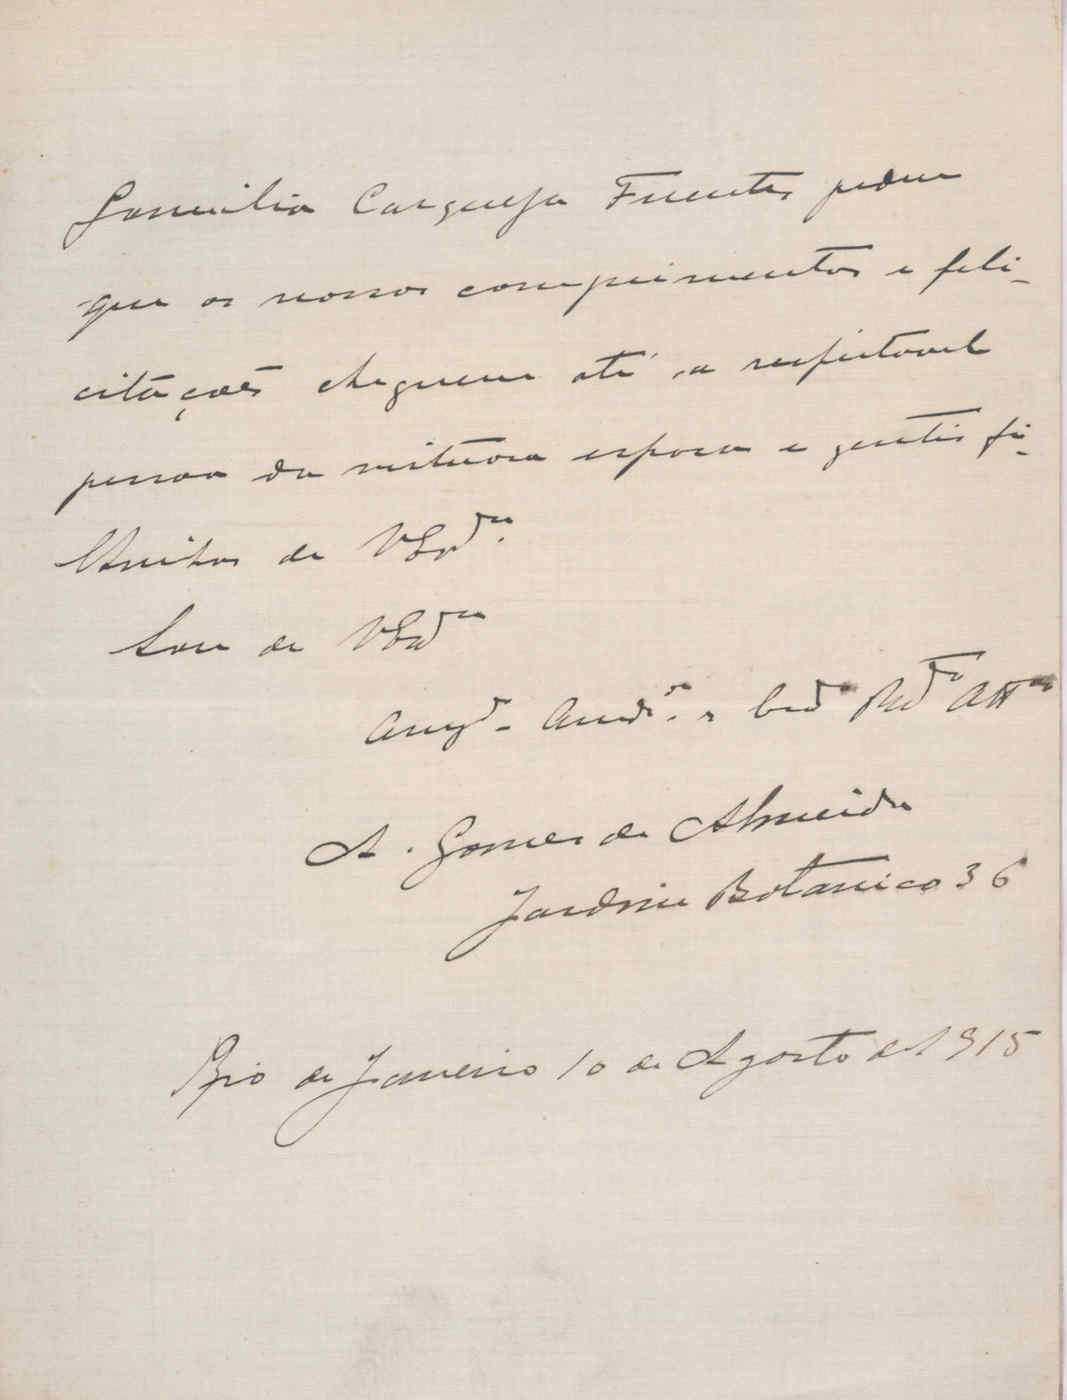 familia Carqueja Fuentes pedem
que os nossos comprimentos e feli-
citações cheguem até a respeitavel
pessoa da virtuosa esposa e gentis fi-
lhinhos de VExcia.
Sou de VExcia
Amgo. e Crdo Attº
A. Gomes de Almeida
Jardim Botanico 36
Rio de Janeiro 10 de Agosto de 1915